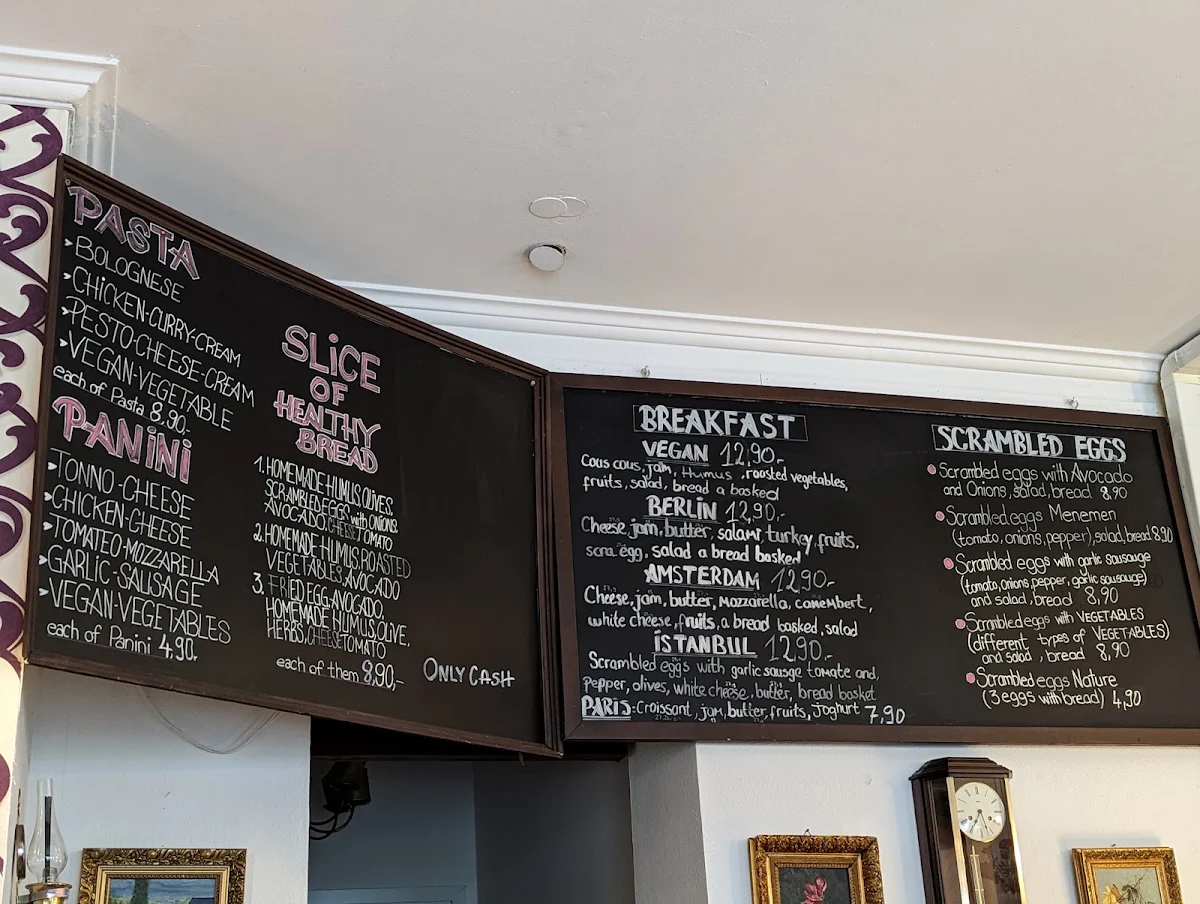 PASTA
BOLOGNESE
CHICKEN-CURRY-CREAM
PESTO-CHEESE-CREAM
VEGAN-VEGETABLE
each of Pasta 8,90.-
PANiNi
TONNO-CHEESE
CHICKEN-CHEESE
TOMATEO-MOZZARELLA
GARLIC-SAUSAGE
VEGAN-VEGETABLES
each of Panini 4,90.
SLiCE
OF
HEALTHY
BREAD
1. HOMEMADE HUMUS, OLIVES,
SCRAMBLED EGGS with ONIONS.
AVOCADO, CHEESE TOMATO
2. HOMEMADE HUMUS, ROASTED
VEGETABLES, AVOCADO
3. FRIED EGG, AVOCADO,
HOMEMADE HUMUS, OLIVE,
HERBS, CHEESE TOMATO
each of them 8,90,-
ONLY CASH
BREAKFAST
VEGAN 12,90.-
Cous cous, jam, Humus, roasted vegetables,
fruits, salad, bread a basked
BERLiN 12,90.-
Cheese, jam, butter, salami, turkey, fruits,
egg, salad a bread basked
AMSTERDAM 12,90.-
Cheese, jam, butter, Mozzarella, camembert,
white cheese, fruits, a bread basked, salad
iSTANBUL 12,90.-
Scrambled eggs with garlic sausge tomate and,
pepper, olives, white cheese, butter, bread basket
PARIS: Croissant, jam, butter, fruits, Joghurt 7,90
SCRAMBLED EGGS
Scrambled eggs with Avocado
and Onions, salad, bread 8,90
Scrambled eggs Menemen
(tomato, onions, pepper), salad, bread 8,90
Scrambled eggs with garlic sausauge
(tomato, onions, pepper, garlic sausauge)
and salad, bread 8,90
Scrambled eggs with VEGETABLES
(different types of VEGETABLES)
and salad, bread 8,90
Scrambled eggs Nature
(3 eggs with bread) 4,90